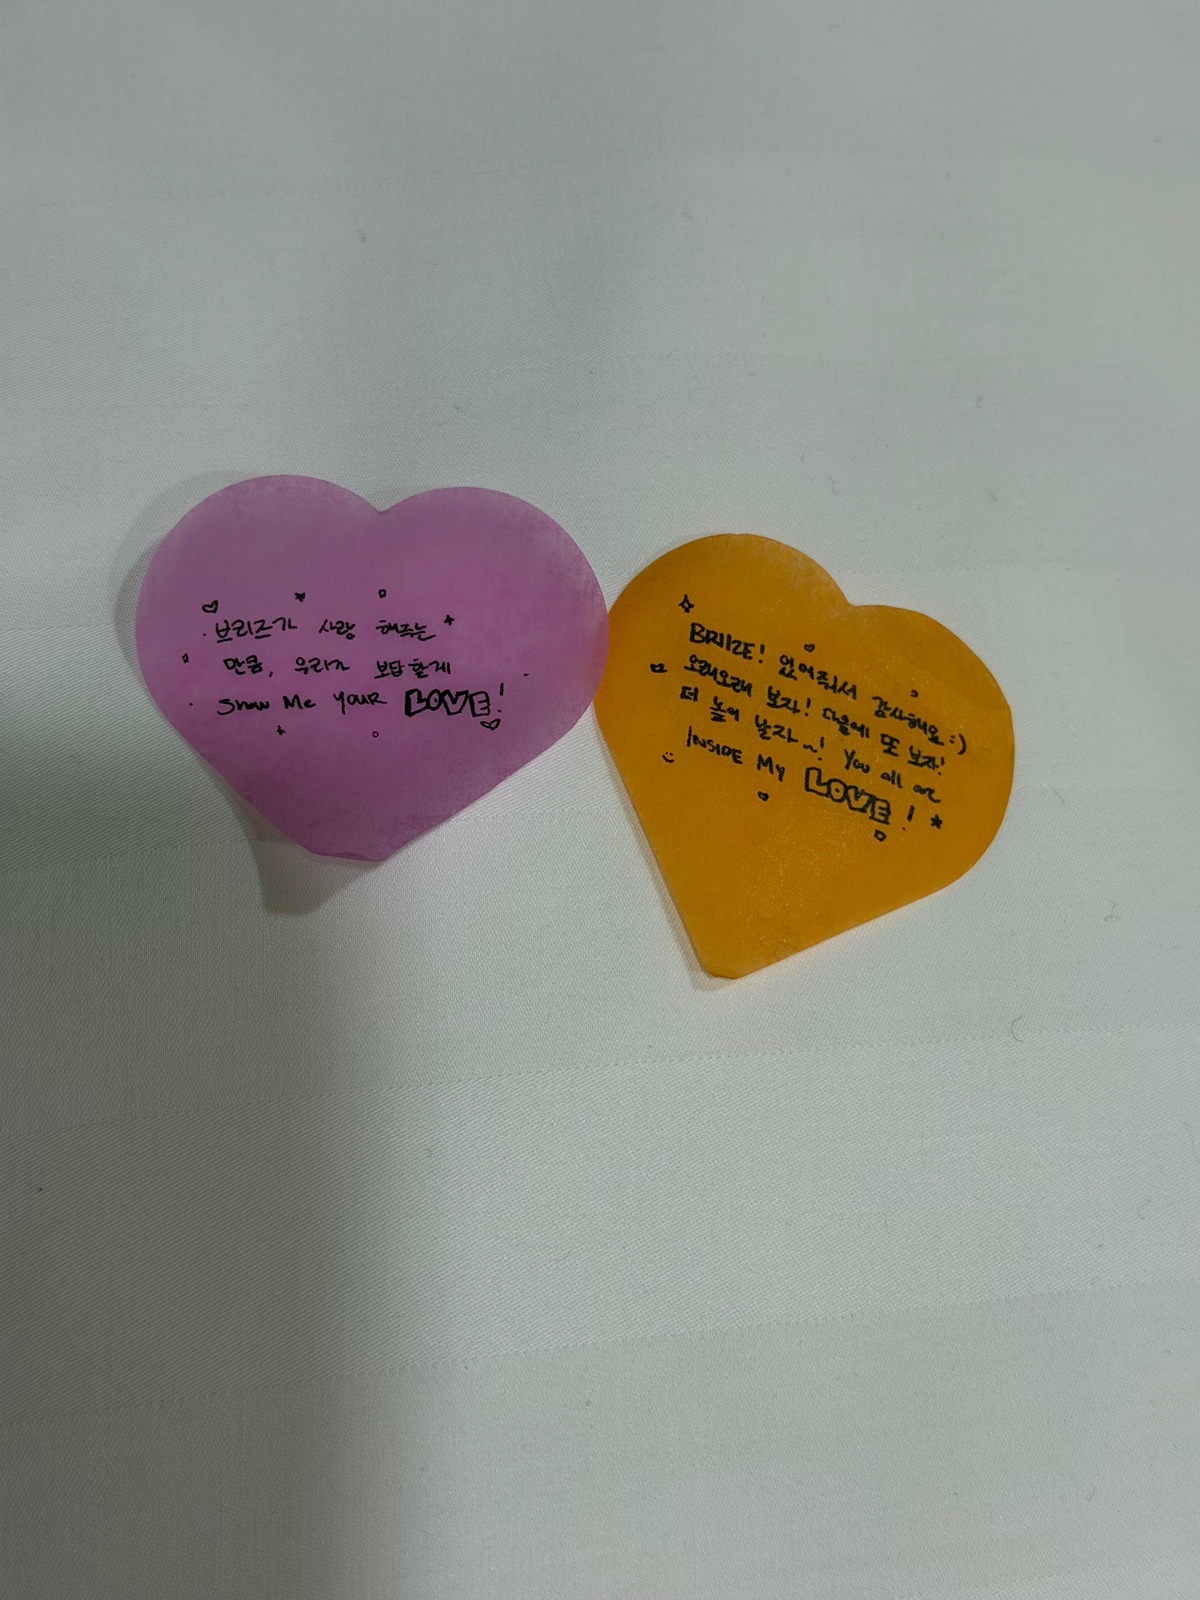 브리즈가 사랑 해주는
만큼, 우리가 보답할게
Show Me YOUR LOVE!
BRIIZE! 있어줘서 감사해요 :)
오래오래 보자! 다음에 또 보자!
더 높이 날자~! You all are
INSIDE My LOVE!